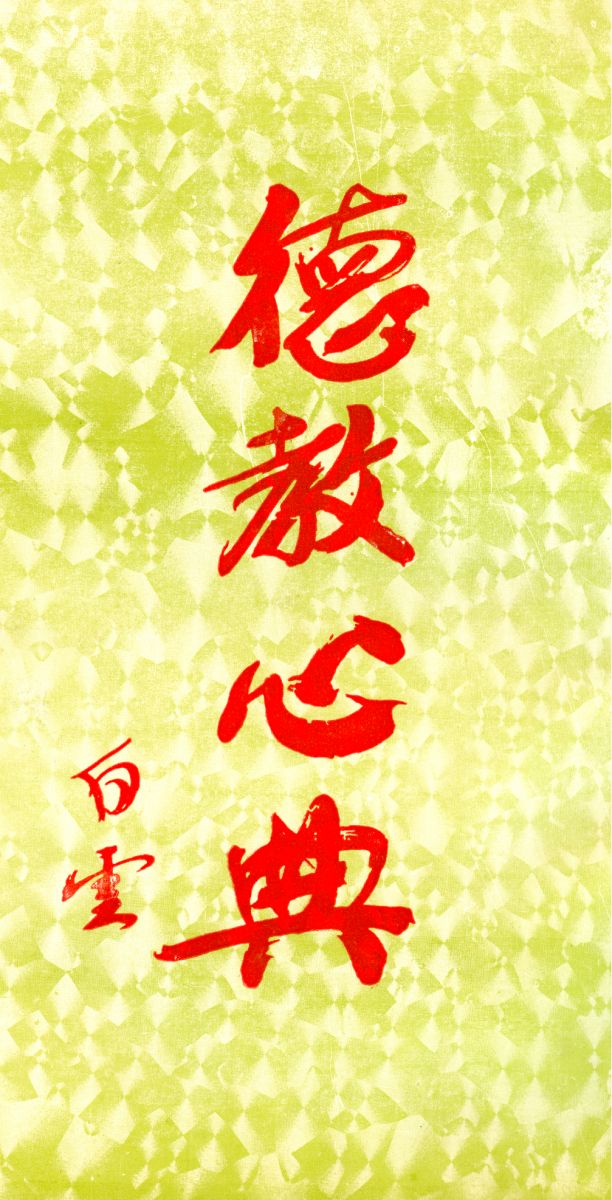 德教心典
白雲